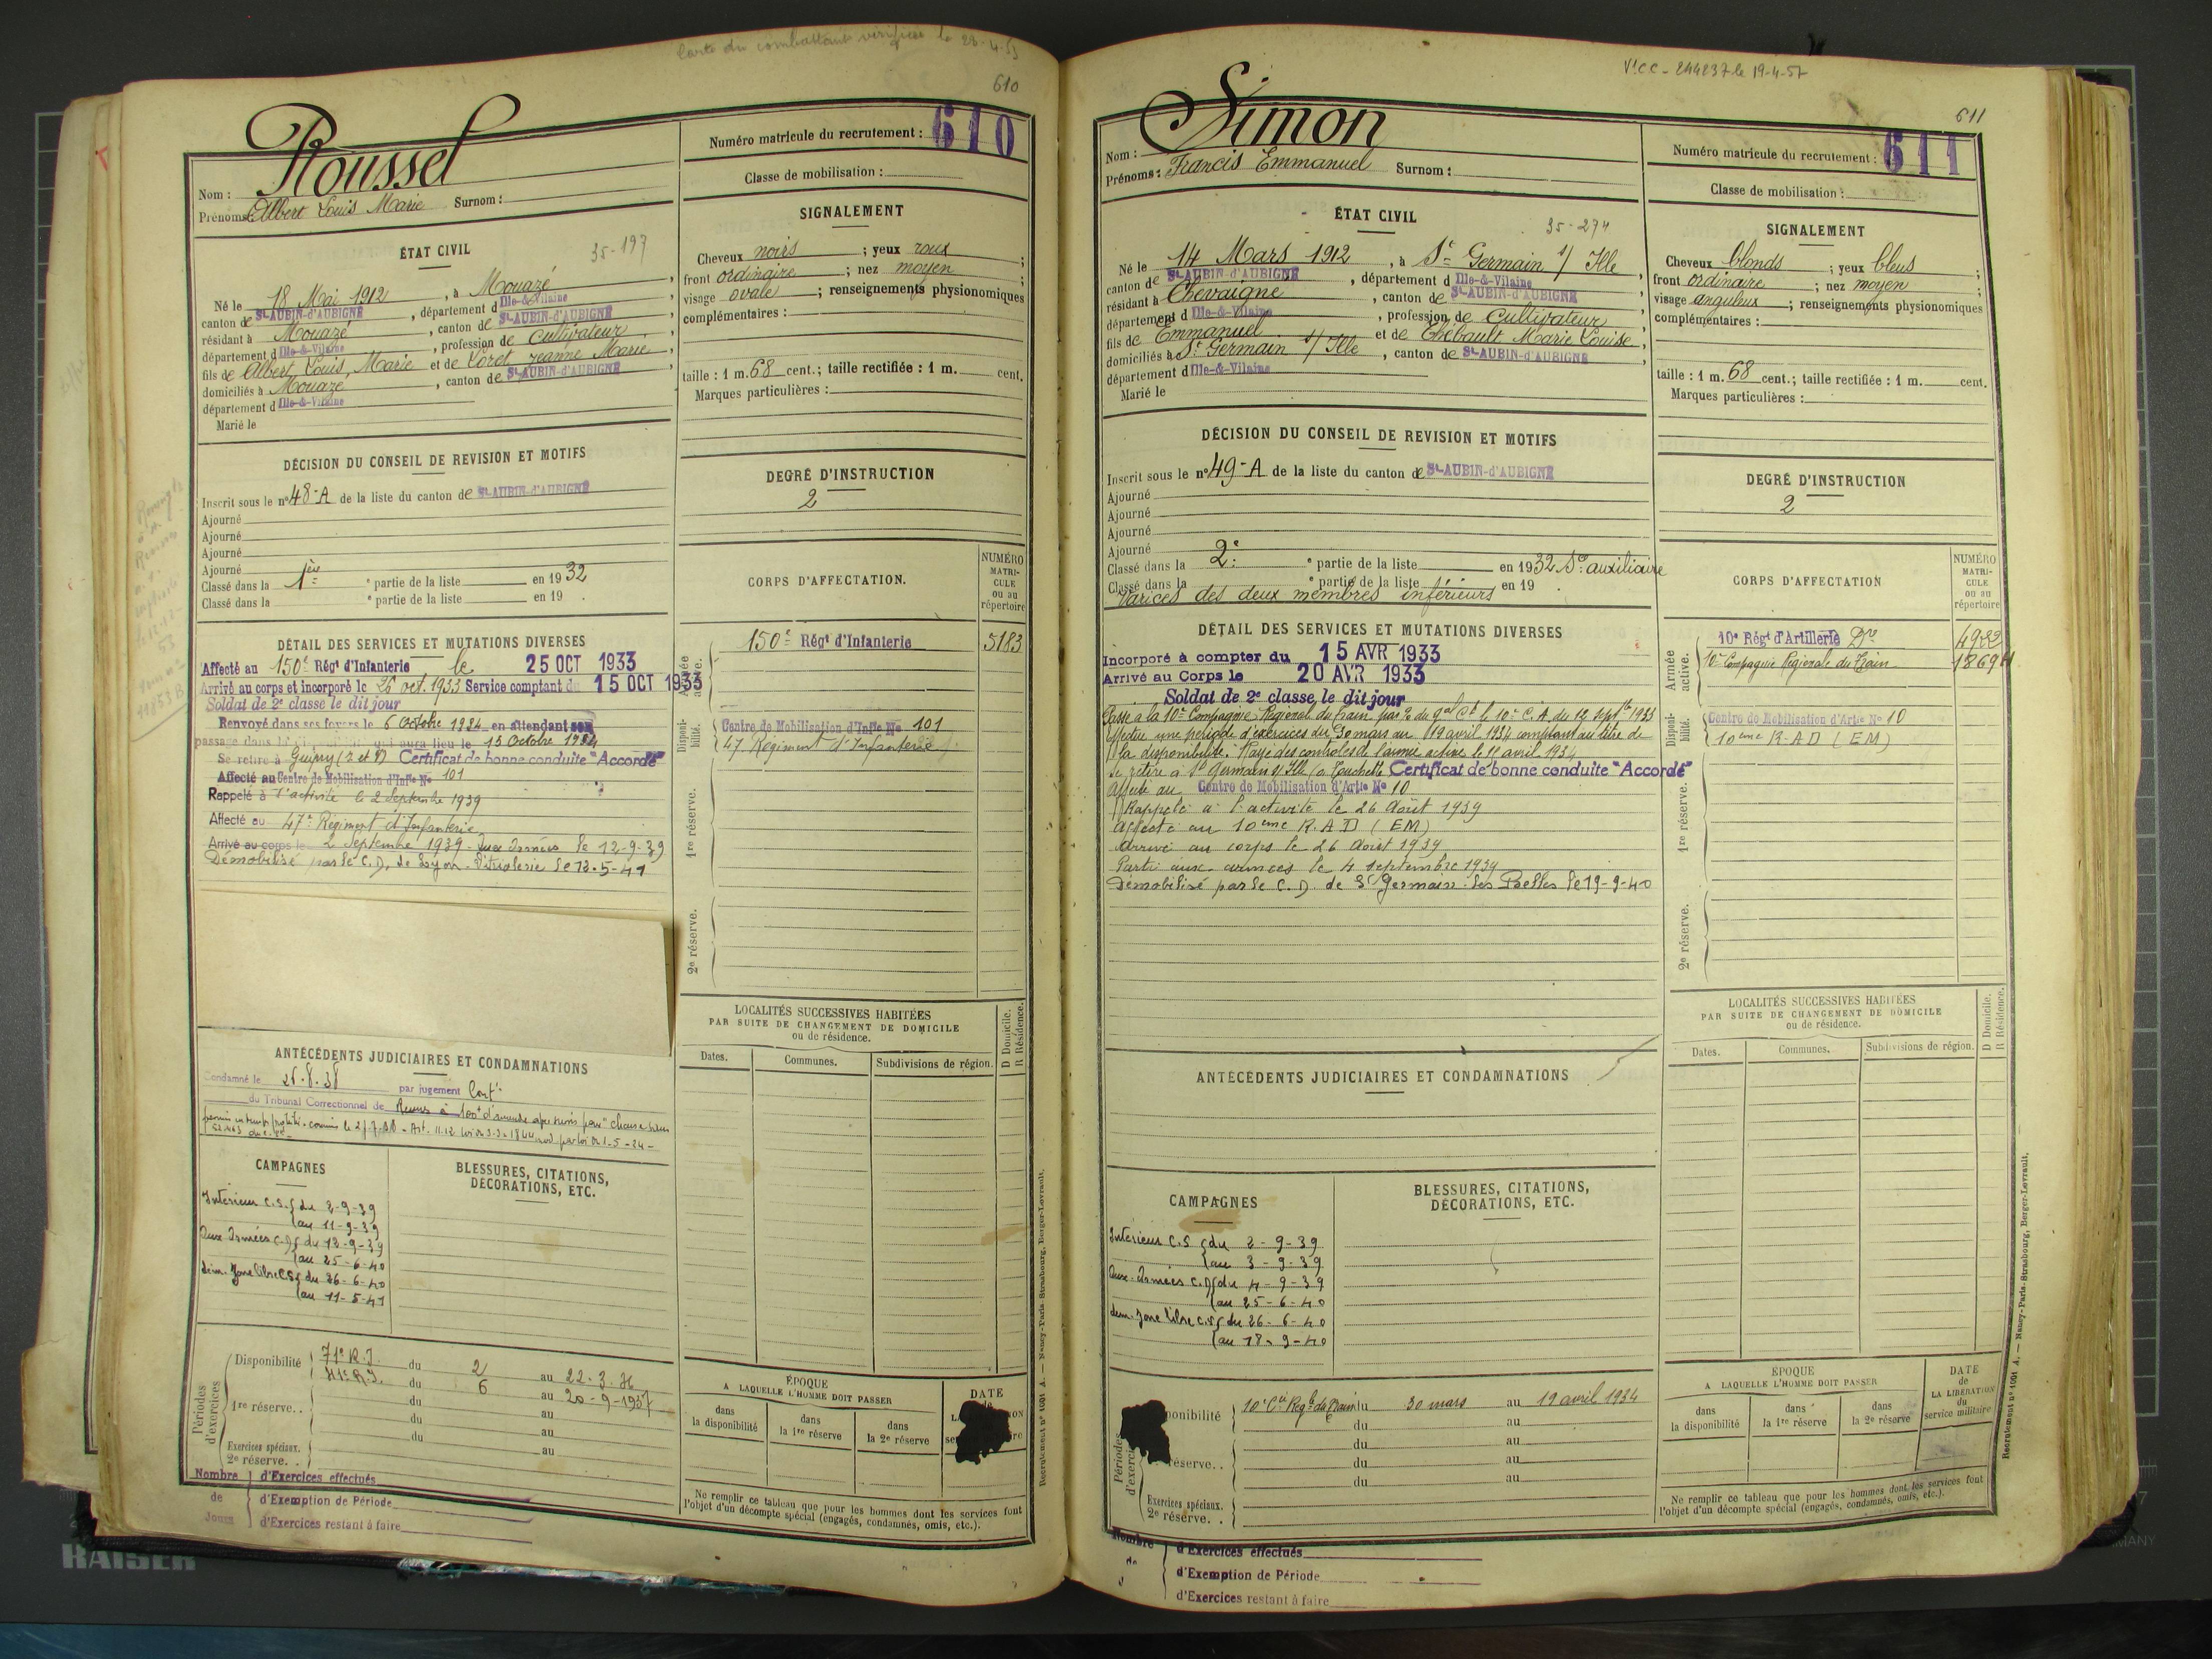 Carte du combattant vérifiée le 28-4-53
610
Roussel
Nom :
Prénoms : Albert Louis Marie Surnom :
Numéro matricule du recrutement : 610
Classe de mobilisation :
ÉTAT CIVIL
35-197
Né le 18 Mai 1912, à Mouazé,
canton de St-AUBIN-d'AUBIGNÉ, département d Ille-&-Vilaine,
résidant à Mouazé, canton de St-AUBIN-d'AUBIGNÉ,
département d Ille-&-Vilaine, profession de Cultivateur,
fils de Albert, Louis, Marie et de Loret Jeanne Marie,
domiciliés à Mouazé, canton de St-AUBIN-d'AUBIGNÉ
département d Ille-&-Vilaine
Marié le
SIGNALEMENT
Cheveux noirs ; yeux roux ;
front ordinaire ; nez moyen ;
visage ovale ; renseignements physionomiques
complémentaires :
taille : 1 m. 68 cent.; taille rectifiée : 1 m. cent.
Marques particulières :
DÉCISION DU CONSEIL DE REVISION ET MOTIFS
Inscrit sous le n° 48-A de la liste du canton de St-AUBIN-d'AUBIGNÉ
Ajourné
Ajourné
Ajourné
Ajourné
Classé dans la 1ère partie de la liste en 1932
Classé dans la e partie de la liste en 19 .
DEGRÉ D'INSTRUCTION
2
DÉTAIL DES SERVICES ET MUTATIONS DIVERSES
Affecté au 150e Régt d'Infanterie le 25 OCT 1933
Arrivé au corps et incorporé le 26 oct. 1933 Service comptant du 15 OCT 1933
Soldat de 2e classe le dit jour
Renvoyé dans ses foyers le 6 Octobre 1934 en attendant son
passage dans la disponibilité qui aura lieu le 15 Octobre 1934
Se retire à Guipry (I et V) Certificat de bonne conduite "Accordé"
Affecté au Centre de Mobilisation d'Infie No 101
Rappelé à l'activité le 2 Septembre 1939
Affecté au 47e Régiment d'Infanterie
Arrivé au corps le 2 Septembre 1939 - Aux Armées le 12-9-39
Démobilisé par le C.D. de Lyon - Vitriolerie le 12-5-41
CORPS D'AFFECTATION.
NUMÉRO MATRICULE ou au répertoire
Armée active.
150e Régt d'Infanterie 5183
Disponibilité.
Centre de Mobilisation d'Infie No 101
47 Régiment d'Infanterie
1re réserve.
2e réserve.
LOCALITÉS SUCCESSIVES HABITÉES
PAR SUITE DE CHANGEMENT DE DOMICILE
ou de résidence.
D Domicile.
R Résidence.
Dates. Communes. Subdivisions de région.
ANTÉCÉDENTS JUDICIAIRES ET CONDAMNATIONS
Condamné le 26.8.38 par jugement Cont.
du Tribunal Correctionnel de Rennes à 100f d'amende
CAMPAGNES
Intérieur C.S. du 2-9-39
au 11-9-39
Aux Armées C.D du 12-9-39
au 25-6-40
dém. Zone libre CS du 26-6-40
au 11-5-41
BLESSURES, CITATIONS,
DÉCORATIONS, ETC.
Périodes d'exercices
Disponibilité 71e R.I. du 2 au 22-3-36
41e R.I. du 6 au 20-9-1937
1re réserve. . du au
du au
du au
Exercices spéciaux.
2e réserve. .
Nombre de Jours
d'Exercices effectués
d'Exemption de Période
d'Exercices restant à faire
ÉPOQUE
A LAQUELLE L'HOMME DOIT PASSER
dans la disponibilité
dans la 1re réserve
dans la 2e réserve
DATE
Ne remplir ce tableau que pour les hommes dont les services font
l'objet d'un décompte spécial (engagés, condamnés, omis, etc.).
Recrutement n° 1001 A. — Nancy-Paris-Strasbourg, Berger-Levrault.
V!CC - 244237 le 19-4-57
611
Simon
Nom :
Prénoms : Francis Emmanuel Surnom :
Numéro matricule du recrutement : 611
Classe de mobilisation :
ÉTAT CIVIL
35-274
Né le 14 Mars 1912, à St Germain s/ Ille,
canton de St-AUBIN-d'AUBIGNÉ, département d Ille-&-Vilaine,
résidant à Chevaigné, canton de St-AUBIN-d'AUBIGNÉ,
département d Ille-&-Vilaine, profession de Cultivateur,
fils de Emmanuel et de Thébault Marie Louise,
domiciliés à St Germain s/ Ille, canton de St-AUBIN-d'AUBIGNÉ
département d Ille-&-Vilaine
Marié le
SIGNALEMENT
Cheveux blonds ; yeux bleus ;
front ordinaire ; nez moyen ;
visage anguleux ; renseignements physionomiques
complémentaires :
taille : 1 m. 68 cent.; taille rectifiée : 1 m. cent.
Marques particulières :
DÉCISION DU CONSEIL DE REVISION ET MOTIFS
Inscrit sous le n° 49-A de la liste du canton de St-AUBIN-d'AUBIGNÉ
Ajourné
Ajourné
Ajourné
Ajourné
Classé dans la 2e partie de la liste en 1932 Sce auxiliaire
Classé dans la e partie de la liste en 19 .
Varices des deux membres inférieurs
DEGRÉ D'INSTRUCTION
2
DÉTAIL DES SERVICES ET MUTATIONS DIVERSES
Incorporé à compter du 15 AVR 1933
Arrivé au Corps le 20 AVR 1933
Soldat de 2e classe le dit jour
Passé à la 10e Compagnie Régional du Train par du Gal Ct le 10e C.A. du 12 septbre 1933
Effectue une période d'exercices du 30 mars au 19 avril 1934 comptant au titre de
la disponibilité. Rayé des contrôles de l'armée active le avril 1934
Se retire à St Germain s/ Ille la Touchette Certificat de bonne conduite "Accordé"
Affecté au Centre de Mobilisation d'Artie No 10
Rappelé à l'activité le 26 Août 1939
affecté au 10ème R.A.D (EM)
Arrivé au corps le 26 Août 1939
Parti aux armées le 4 septembre 1939
Démobilisé par le C.D de St Germain-les Belles le 19-9-40
CORPS D'AFFECTATION
NUMÉRO MATRICULE ou au répertoire
Armée active.
10e Régt d'Artillerie Dre 4982
10e Compagnie Régionale du Train 1869
Disponibilité.
Centre de Mobilisation d'Artie No 10
10ème R-A-D (EM)
1re réserve.
2e réserve.
LOCALITÉS SUCCESSIVES HABITÉES
PAR SUITE DE CHANGEMENT DE DOMICILE
ou de résidence.
D Domicile.
R Résidence.
Dates. Communes. Subdivisions de région.
ANTÉCÉDENTS JUDICIAIRES ET CONDAMNATIONS
CAMPAGNES
Intérieur C.S du 2-9-39
au 3-9-39
Aux Armées C.D du 4-9-39
au 25-6-40
dém. Zone libre C.S du 26-6-40
au 18-9-40
BLESSURES, CITATIONS,
DÉCORATIONS, ETC.
Périodes d'exerci
ponibilité 10e Cie Régle du Train du 30 mars au 19 avril 1934
du au
du au
réserve. . du au
du au
Exercices spéciaux.
2e réserve. .
Nombre de
d'Exercices effectués
d'Exemption de Période
d'Exercices restant à faire
ÉPOQUE
A LAQUELLE L'HOMME DOIT PASSER
dans la disponibilité
dans la 1re réserve
dans la 2e réserve
DATE
de
LA LIBÉRATION
du
service militaire
Ne remplir ce tableau que pour les hommes dont les services font
l'objet d'un décompte spécial (engagés, condamnés, omis, etc.).
Recrutement n° 1001 A. — Nancy-Paris-Strasbourg, Berger-Levrault.
KAISER